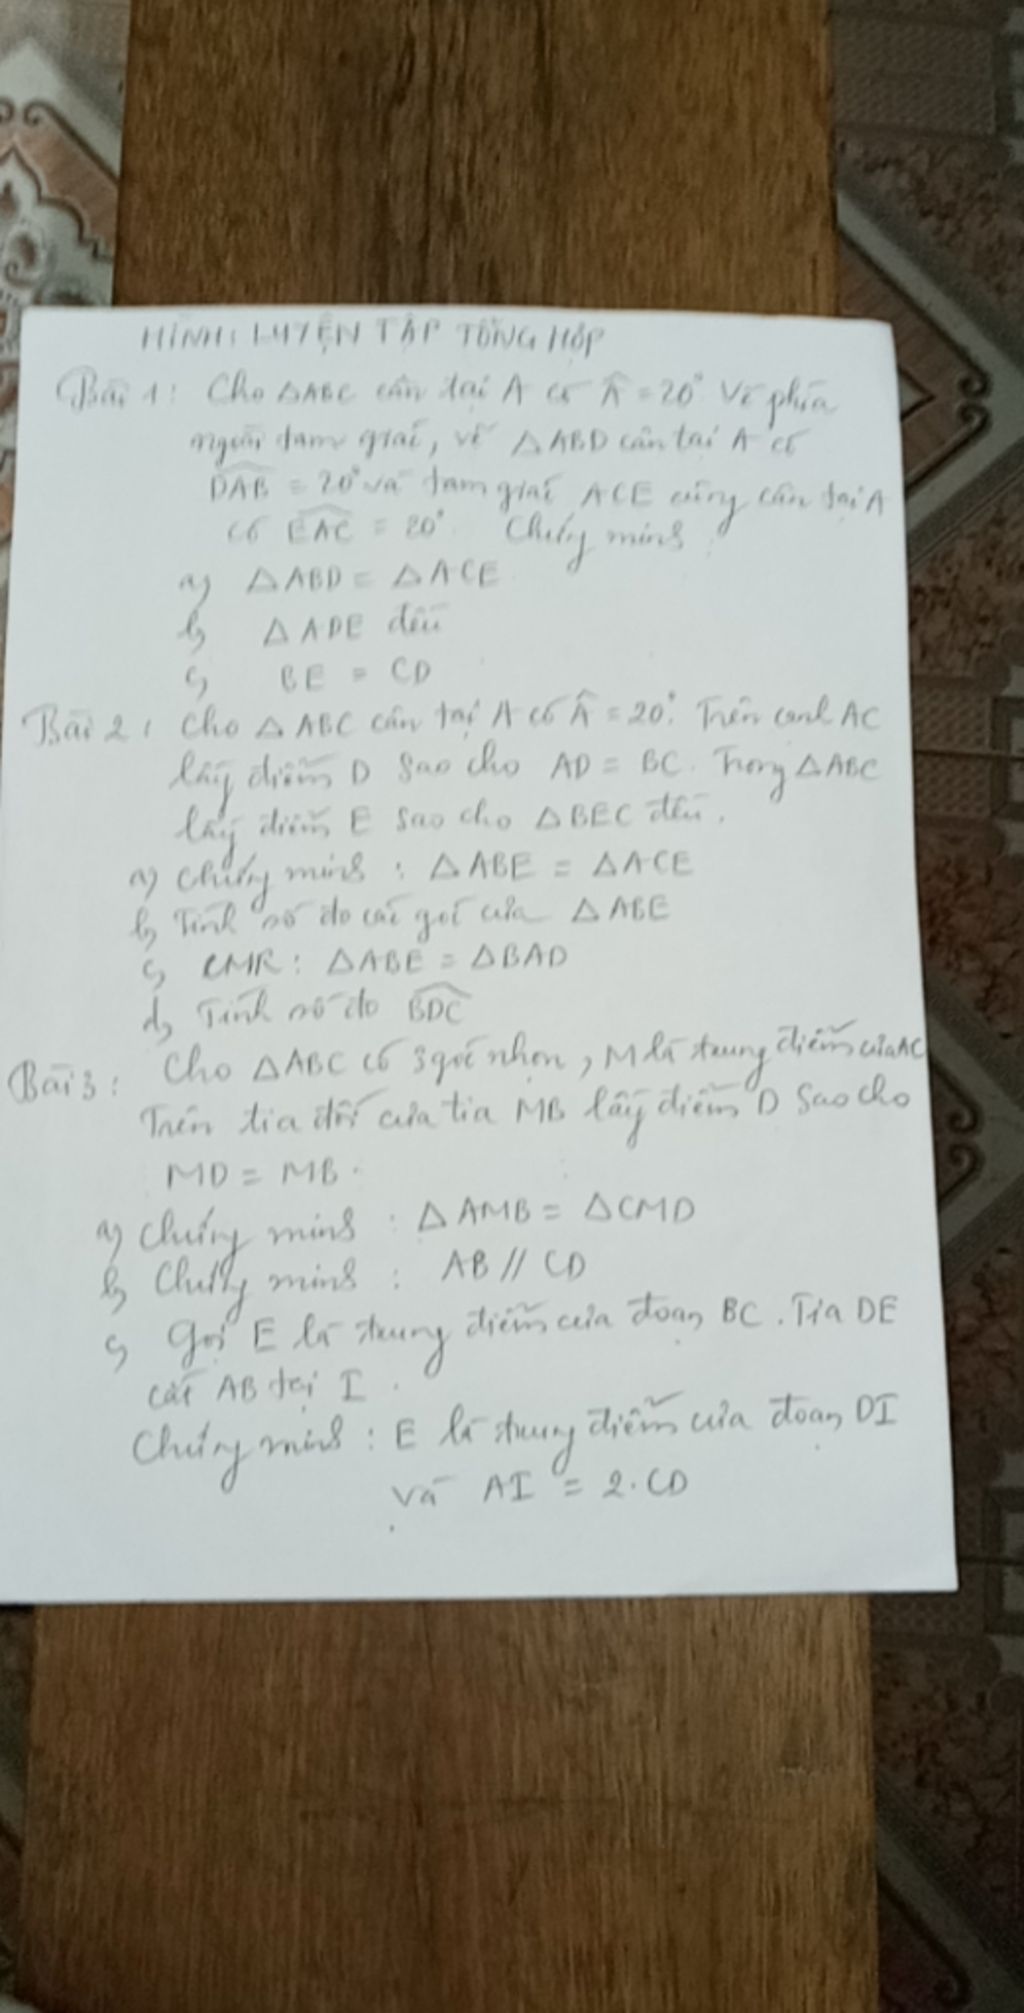 HÌNH: LUYỆN TẬP TỔNG HỢP
Bài 1: Cho △ABC cân tại A có Â = 20° Vẽ phía
ngoài tam giác, vẽ △ABD cân tại A có
DAB = 20° và tam giác ACE cũng cân tại A
có EAC = 20° Chứng minh:
a) △ABD = △ACE
b) △ADE đều
c) BE = CD
Bài 2: Cho △ABC cân tại A có Â = 20°. Trên cạnh AC
lấy điểm D sao cho AD = BC. Trong △ABC
lấy điểm E sao cho △BEC đều.
a) Chứng minh: △ABE = △ACE
b) Tính số đo các góc của △ABE
c) CMR: △ABE = △BAD
d) Tính số đo BDC
Bài 3: Cho △ABC có 3 góc nhọn, M là trung điểm của AC
Trên tia đối của tia MB lấy điểm D sao cho
MD = MB.
a) Chứng minh: △AMB = △CMD
b) Chứng minh: AB // CD
c) Gọi E là trung điểm của đoạn BC. Tia DE
cắt AB tại I.
Chứng minh: E là trung điểm của đoạn DI
và AI = 2.CD